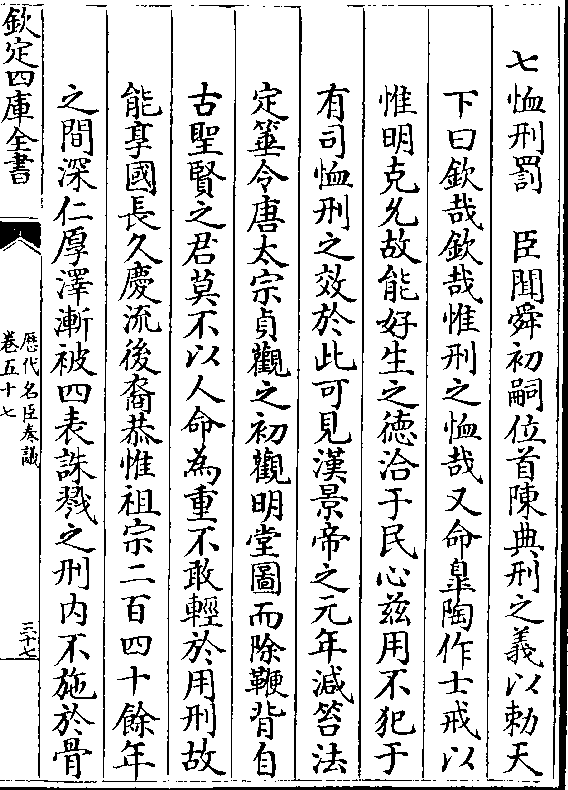 七恤刑罰　臣聞舜初嗣位首陳典刑之義以勅天
下曰欽哉欽哉惟刑之恤哉又命臯陶作士戒以
惟明克允故能好生之德洽于民心兹用不犯于
有司恤刑之效於此可見漢景帝之元年減笞法
定箠令唐太宗貞觀之初觀明堂圖而除鞭背自
古聖賢之君莫不以人命為重不敢輕於用刑故
能享國長久慶流後裔恭惟祖宗二百四十餘年
之間深仁厚澤漸被四表誅戮之刑内不施於骨
欽定四庫全書
歴代名臣奏議
卷五十七
三十七